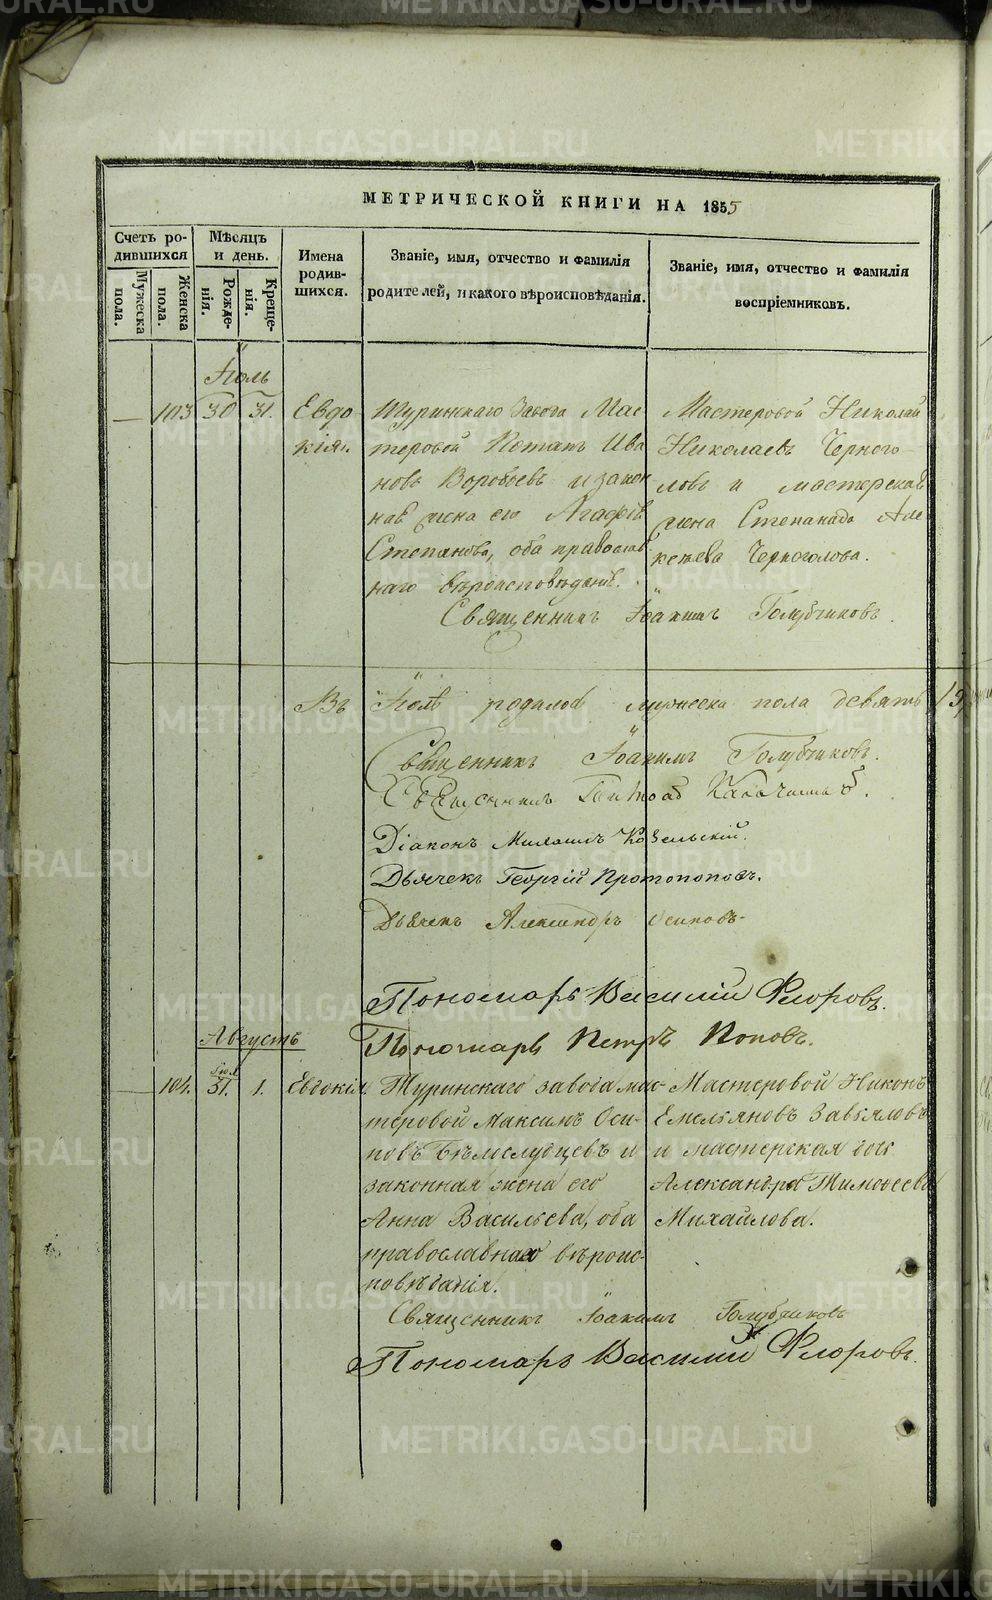 METRIKI.GASO-URAL.RU
МЕТРИЧЕСКОЙ КНИГИ НА 1855
Счетъ ро-
дившихся
Мужеска пола.
Женска пола.
Мѣсяцъ
и день.
Рожде-
нія.
Креще-
нія.
Имена
родив-
шихся.
Званіе, имя, отчество и фамилія
родителей, и какого вѣроисповѣданія.
Званіе, имя, отчество и фамилія
воспріемниковъ.
Іюль
103 30 31. Евдо
кія.
Туринскаго Завода Мас
теровой Потапъ Ива
новъ Воробьевъ и закон
ная жена его Агафія
Степанова, оба православ
наго вѣроисповѣданія.
Мастеровой Николай
Николаевъ Черного-
ловъ и мастерская
жена Степанида Але
ксѣева Черноголова.
Священникъ Іоакимъ Голубчиковъ.
Въ Іюлѣ родилось мужеска пола девять 19
Священникъ Іоакимъ Голубчиковъ.
Священникъ
Діаконъ Михаилъ Козельскій.
Дьячекъ Георгій Протопоповъ.
Дьячекъ Александръ Осиповъ
Пономарь Василій Флоровъ.
Августъ
Пономарь Петръ Поповъ.
104. Іюл. 31. 1. Евдокія.
Туринскаго завода мас-
теровой Максимъ Оси-
повъ Бѣлослудцевъ и
законная жена его
Анна Васильева, оба
православнаго вѣроис-
повѣданія.
Мастеровой Никонъ
Емельяновъ Завьяловъ
и мастерская дочь
Александра Тимоѳеева
Михайлова.
Священникъ Іоакимъ Голубчиковъ
Пономарь Василій Флоровъ.